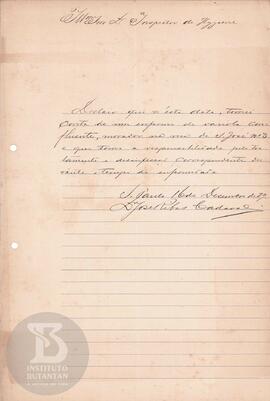 Illmo Snr Dr Inspector de Hygiene
Declaro que n'esta data, tomei
conta de um enfermo de variola con
fluente, morador na rua de S. José nº 3
e que tomo a responsabilidade pelo
tratamento e desinfecção correspondente du
rante o tempo da enfermidade
S. Paulo 16 de Dezembro de
Dr José Ribas Cadaval
INSTITUTO
BUTANTAN
A SERVIÇO DA VIDA